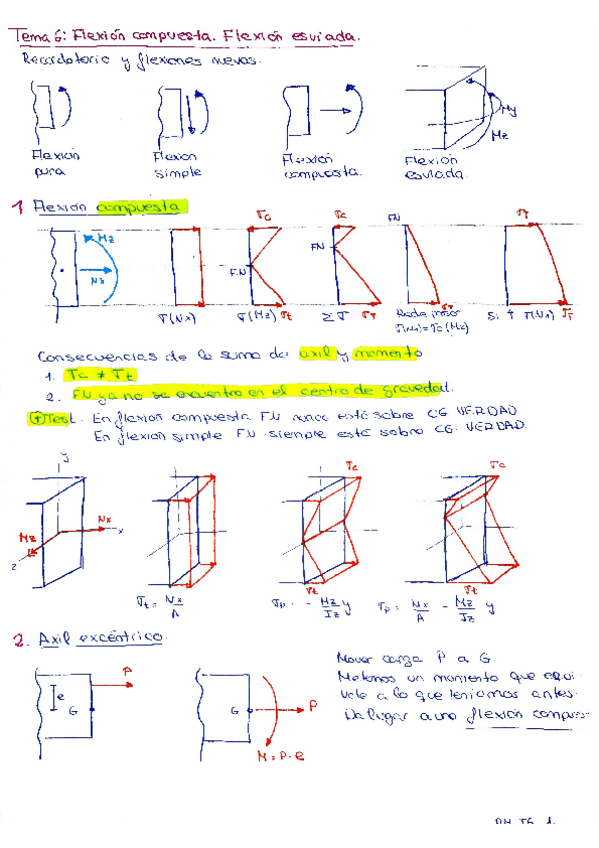 Tema 6: Flexión compuesta. Flexión esviada.
Recordatorio y flexiones nuevas.
Flexión pura
Flexión simple
Flexión compuesta.
Flexión esviada.
My
Mz
1 Flexión compuesta
Mz
Nx
σc
σc
FN
σT
FN
FN
σ(Nx)
σ(Mz) σt
Σσ σT
σT
σ(Nx)=σc(Mz)
Si ↑ σ(Nx) σT
Consecuencias de la suma de: axil y momento
1. σc ≠ σt
2. FN ya no se encuentra en el centro de gravedad.
Test. En flexión compuesta FN nunca está sobre CG VERDAD.
En flexión simple FN siempre está sobre CG. VERDAD.
y
Nx
x
Mz
z
σc
σc
σt
σt
σt = Nx/A
σp = - Mz/Iz y
σp = Nx/A - Mz/Iz y
2. Axil excéntrico.
P
e
G
G
P
M = P·e
Mover carga P a G
Metemos un momento que equi-
vale a lo que teníamos antes.
Da lugar a una flexión compues-